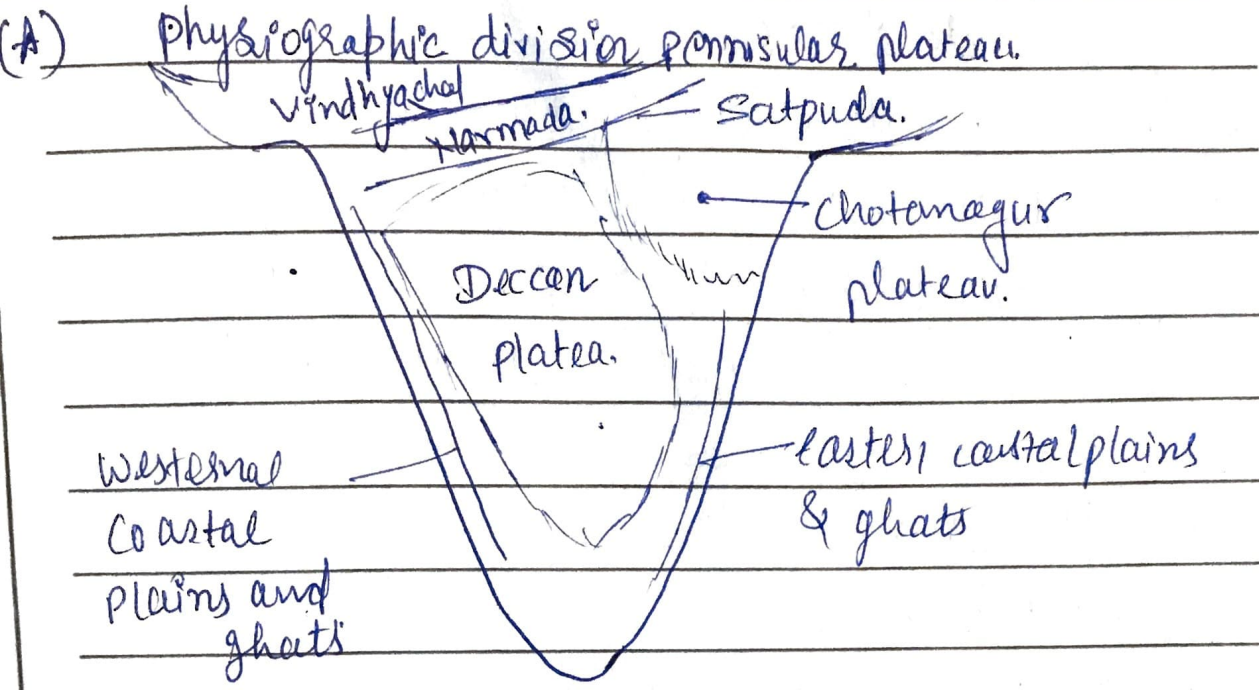 (A) Physiographic division pennisular plateau.
Vindhyachal
Narmada.
Satpuda.
Chotanagur
plateau.
Deccan
platea.
Westernal
Coastal
plains and
ghats
Eastern coastal plains
& ghats